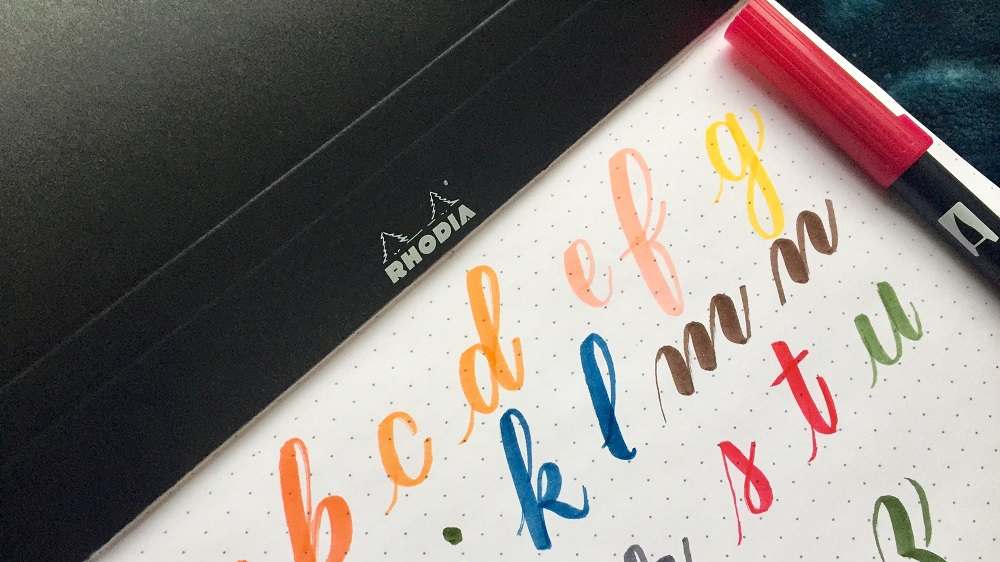 RHODIA
b c d e f g
k l m n
s t u
A